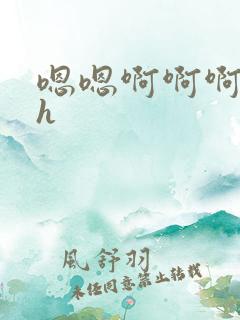 嗯嗯啊啊啊
h
風舒羽
未经同意禁止转载